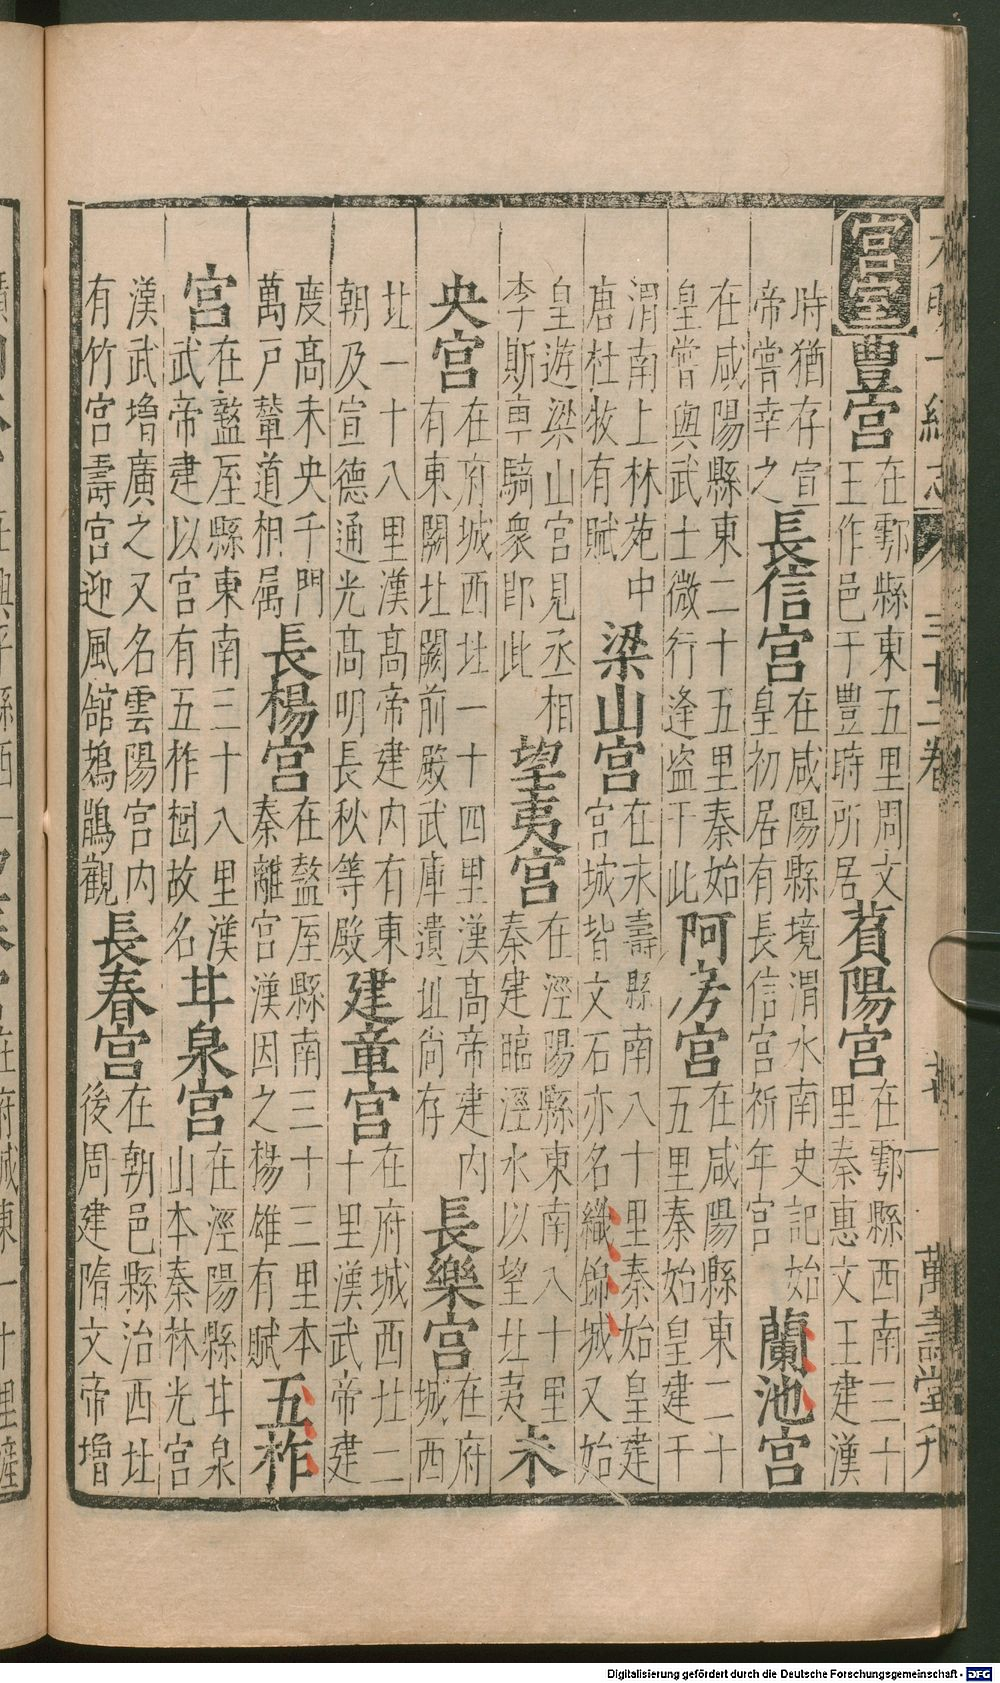 大明一統志 三十二卷 萬壽堂刊
宮室
豐宮
在鄠縣東五里周文
王作邑于豐時所居
萯陽宮
在鄠縣西南三十
里秦惠文王建漢
時猶存宣
帝嘗幸之
長信宮
在咸陽縣境渭水南史記始
皇初居有長信宮祈年宮
蘭池宮
在咸陽縣東二十五里秦始
皇嘗與武士微行逢盗于此
阿房宮
在咸陽縣東二十
五里秦始皇建于
渭南上林苑中
唐杜牧有賦
梁山宮
在永壽縣南八十里秦始皇建
宮城皆文石亦名織錦城又始
皇遊梁山宮見丞相
李斯車騎衆即此
望夷宮
在涇陽縣東南八十里
秦建臨涇水以望北夷
未
央宮
在府城西北一十四里漢高帝建内
有東闕北闕前殿武庫遺址尚存
長樂宮
在府
城西
北一十八里漢高帝建内有東
朝及宣德通光高明長秋等殿
建章宮
在府城西北二
十里漢武帝建
度高未央千門
萬戸輦道相属
長楊宮
在盩厔縣南三十三里本
秦離宮漢因之楊雄有賦
五柞
宮
在盩厔縣東南三十八里漢
武帝建以宮有五柞樹故名
甘泉宮
在涇陽縣甘泉
山本秦林光宮
漢武增廣之又名雲陽宮内
有竹宮壽宮迎風館鳷鵲觀
長春宮
在朝邑縣治西北
後周建隋文帝增
Digitalisierung gefördert durch die Deutsche Forschungsgemeinschaft - DFG